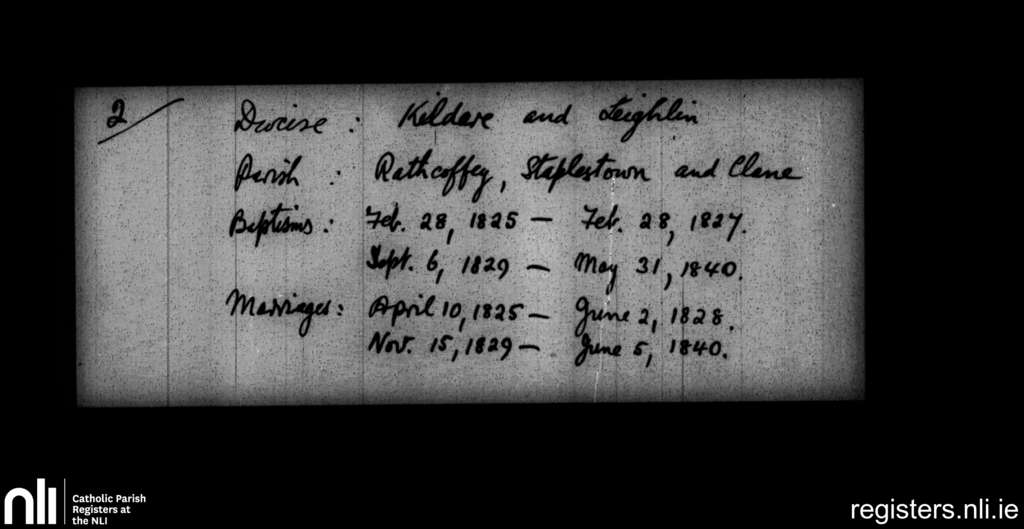 2/
Diocese : Kildare and Leighlin
Parish : Rathcoffey, Staplestown and Clane
Baptisms : Feb. 28, 1825 — Feb. 28, 1827.
Sept. 6, 1829 — May 31, 1840.
Marriages : April 10, 1825 — June 2, 1828.
Nov. 15, 1829 — June 5, 1840.
nli
Catholic Parish
Registers at
the NLI
registers.nli.ie